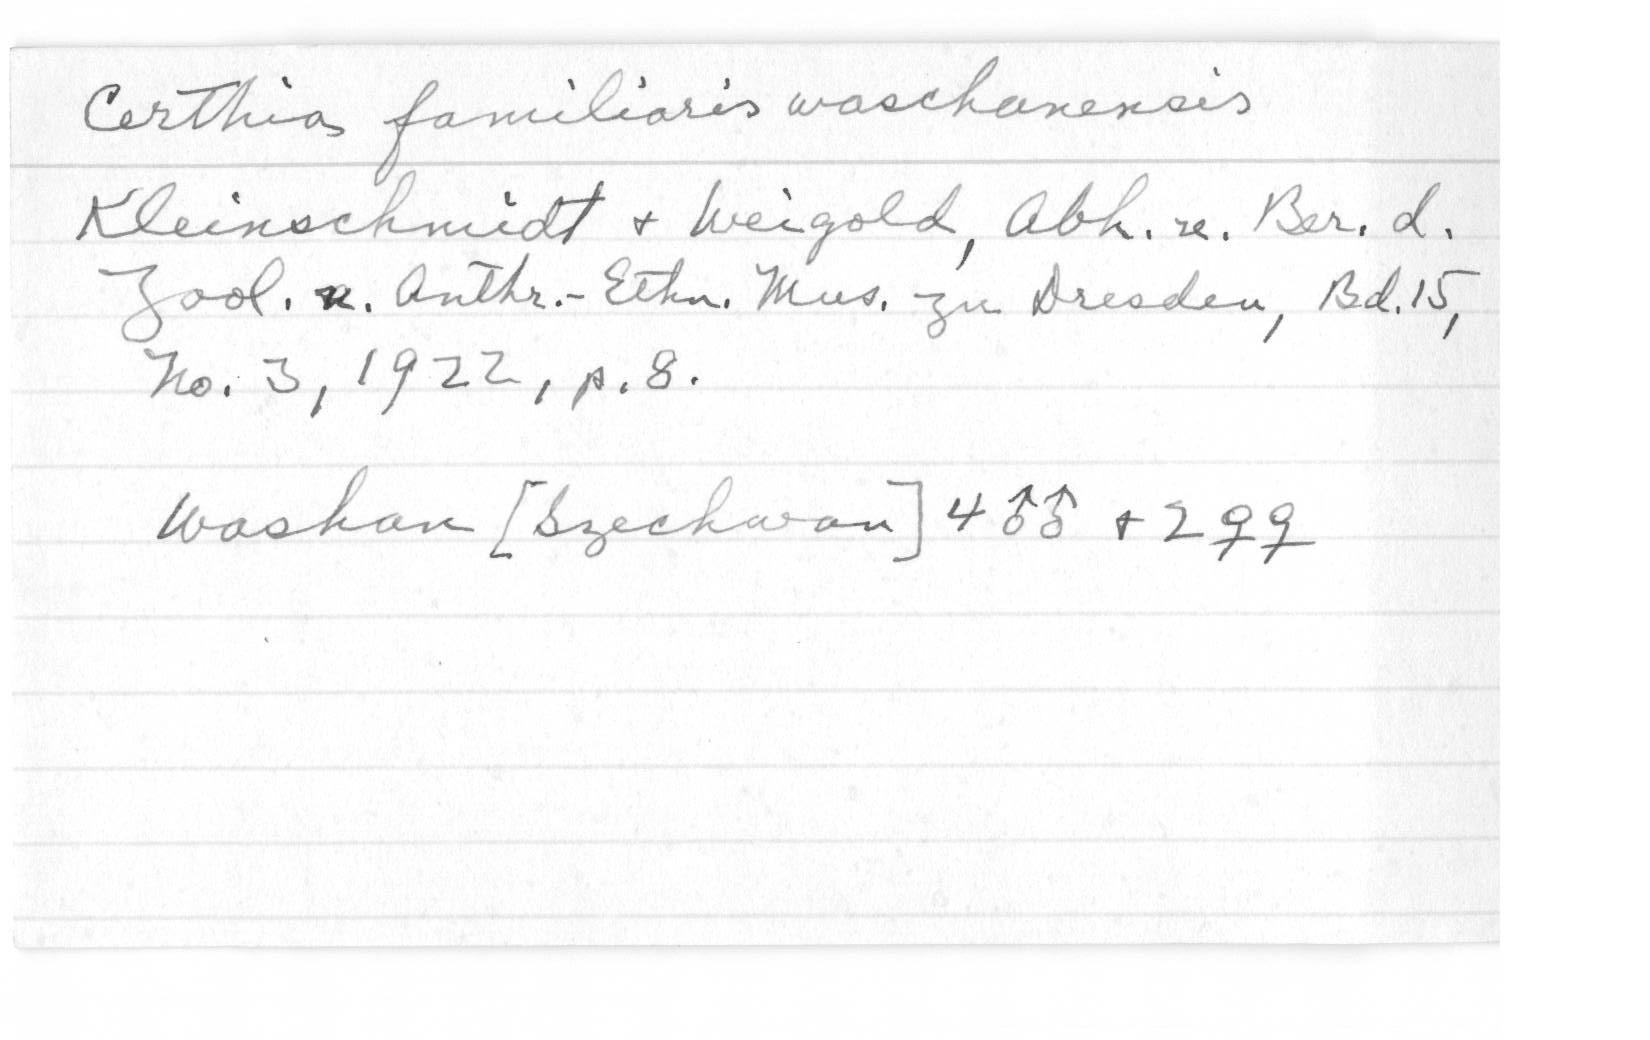 Certhia familiaris waschanensis
Kleinschmidt + Weigold, Abh. u. Ber. d.
Zool. u. Anthr.-Ethn. Mus. zu Dresden, Bd. 15,
No. 3, 1922, p. 8.
Washan [Szechwan] 4 ♂♂ + 2 ♀♀